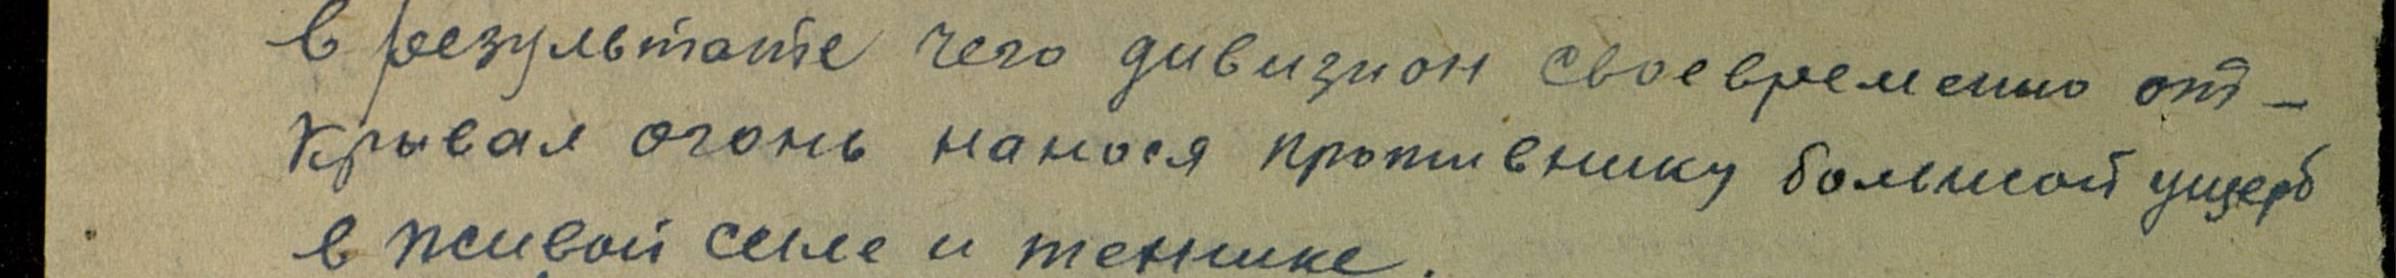 в результате чего дивизион своевременно от-
крывал огонь нанося противнику большой ущерб
в живой силе и технике.